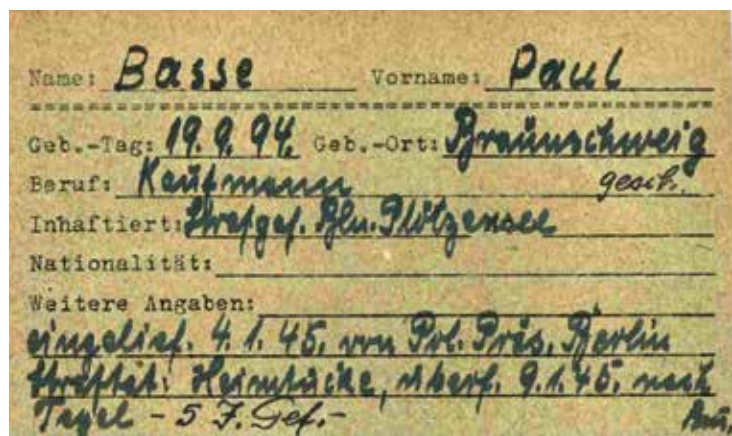 Name: Basse Vorname: Paul
Geb.-Tag: 19.9.94. Geb.-Ort: Braunschweig
Beruf: Kaufmann gesch.
Inhaftiert: Strafgef. Bln. Plötzensee
Nationalität:
Weitere Angaben:
eingelief. 4.1.45. von Pol. Präs. Berlin
Straftat: Heimtücke, überf. 9.1.45. nach
Tegel - 5 J. Gef.-